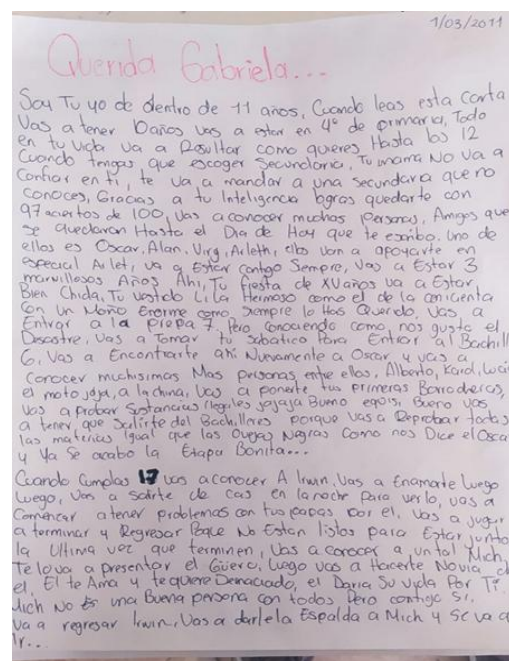 1/03/2011
Querida Gabriela...
Soy Tu yo de dentro de 11 años, Cuando leas esta Carta
Vas a tener 10años vas a estar en 4° de primaria, Todo
en tu vida va a Resultar como quieres Hasta los 12
Cuando tengas que escoger Secundaria, Tu mama No va a
Confiar en ti, te va a mandar a una secundaria que no
Conoces, Gracias a tu Inteligencia logras quedarte con
97 aciertos de 100, Vas a conocer muchas personas, Amigos que
se quedaron Hasta el Dia de Hoy que te escribo. uno de
ellos es Oscar, Alan, Virg, Arleth, ellos van a apoyarte en
especial Arlet, va a Estar contigo Sempre, Vas a Estar 3
marvillosos Años Ahi, Tu fiesta de XV años va a Estar
Bien Chida, Tu vestido Lila Hermoso como el de la cenicienta
Con un Moño Enorme como siempre lo Has Querido, Vas a
Entrar a la prepa 7, Pero Conociendo como nos gusta el
Desastre, Vas a Tomar tu sabatico Para Entrar al Bachill
6, Vas a Encontrarte ahi Nuevamente a Oscar y vas a
Conocer muchisimas Mas personas, entre ellos, Alberto, Karol,
el moto jojo, a la china, Vas a ponerte tus primeras Borracheras,
Vas a probar Sustancias Ilegales jajaja Bueno equis, Bueno vas
a tener que Salirte del Bachilleres porque vas a Reprobar todas
las materias Igual que las Ovejas Negras Como nos Dice el Oscar
y Ya Se acabo la Etapa Bonita...
Cuando Cumplas 17 vas a conocer A Irwin, Vas a Enamate Luego
Luego, Vas a salirte de cas en la noche para verlo, vas a
Comenzar a tener problemas con tus papas por el, Vas a jugar
a terminar y Regresar Poque No Estan listos para Estar junto
la Ultima vez que terminen, Vas a conocer a un tal Mich,
Te lo va a presentar el Güero, Luego vas a Hacerte Novia de
el, El te Ama y te quiere Demaciado, el Daria Su vida Por Ti.
Mich No Es una Buena persona con todos Pero contigo Si.
Va a regresar Irwin, Vas a darle la Espalda a Mich y Se va a
Ir...